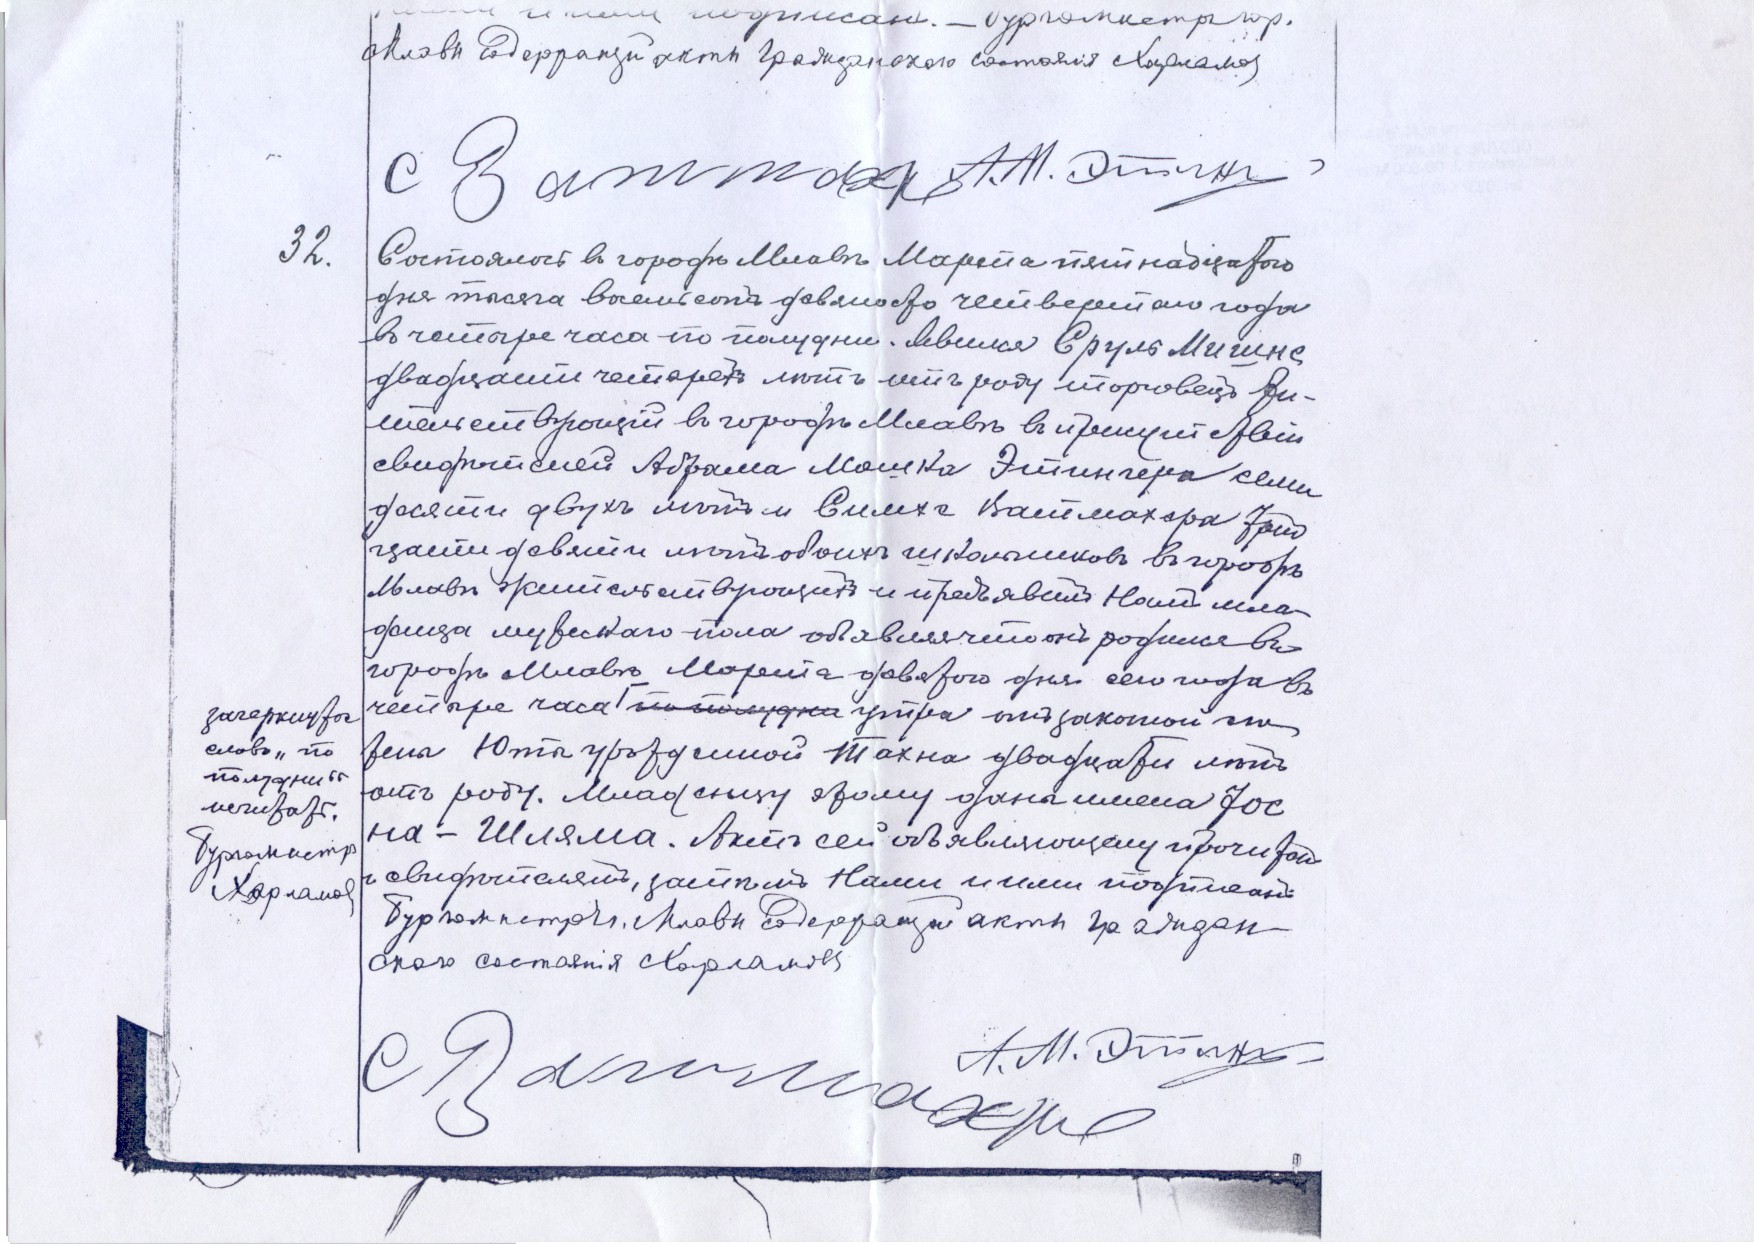 подписан. — Бургомистръ гор.
Млавы Содержащій акты Гражданскаго состоянія Харламовъ
С Ватмахер А. М. Этингер
32.
Состоялось въ городѣ Млавѣ Марта пятнадцатаго
дня тысяча восемьсотъ девяносто четвертаго года
въ четыре часа по полудни. Явился Сруль
двадцати четырехъ лѣтъ отъ роду торговецъ жи-
тельствующій въ городѣ Млавѣ въ присутствіи
свидѣтелей Абрама Мошка Этингера семи
десяти двухъ лѣтъ и Симхи Ватмахера трид
цати девяти лѣтъ обоихъ школьниковъ въ городѣ
Млавѣ жительствующихъ и предъявилъ Намъ мла-
денца мужескаго пола объявляя что онъ родился въ
городѣ Млавѣ Марта девятого дня сего года въ
четыре часа по полудни утра отъ законной его
жены Юты урожденной двадцати лѣтъ
отъ роду. Младенцу этому даны имена Іос
на - Шляма. Актъ сей объявляющему прочитанъ
и свидѣтелямъ, затѣмъ Нами и ими подписанъ
Бургомистръ г. Млавы Содержащій акты Граждан-
скаго состоянія Харламовъ
зачеркнутое
слово „по
полудни“
нечитать.
Бургомистръ
Харламовъ
А. М. Этингер
С Ватмахер